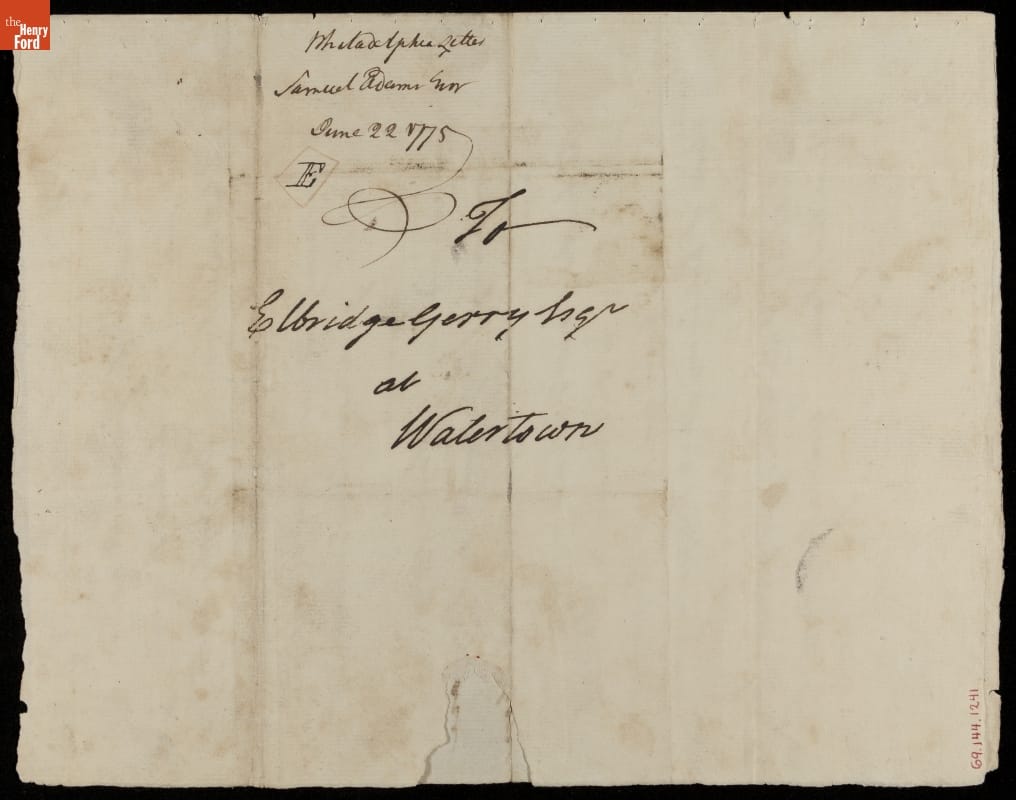 the
Henry
Ford
Philadelphia Letter
Samuel Adams Esqr
June 22 1775
E
To
Elbridge Gerry Esqr
at
Watertown
69.144.1241